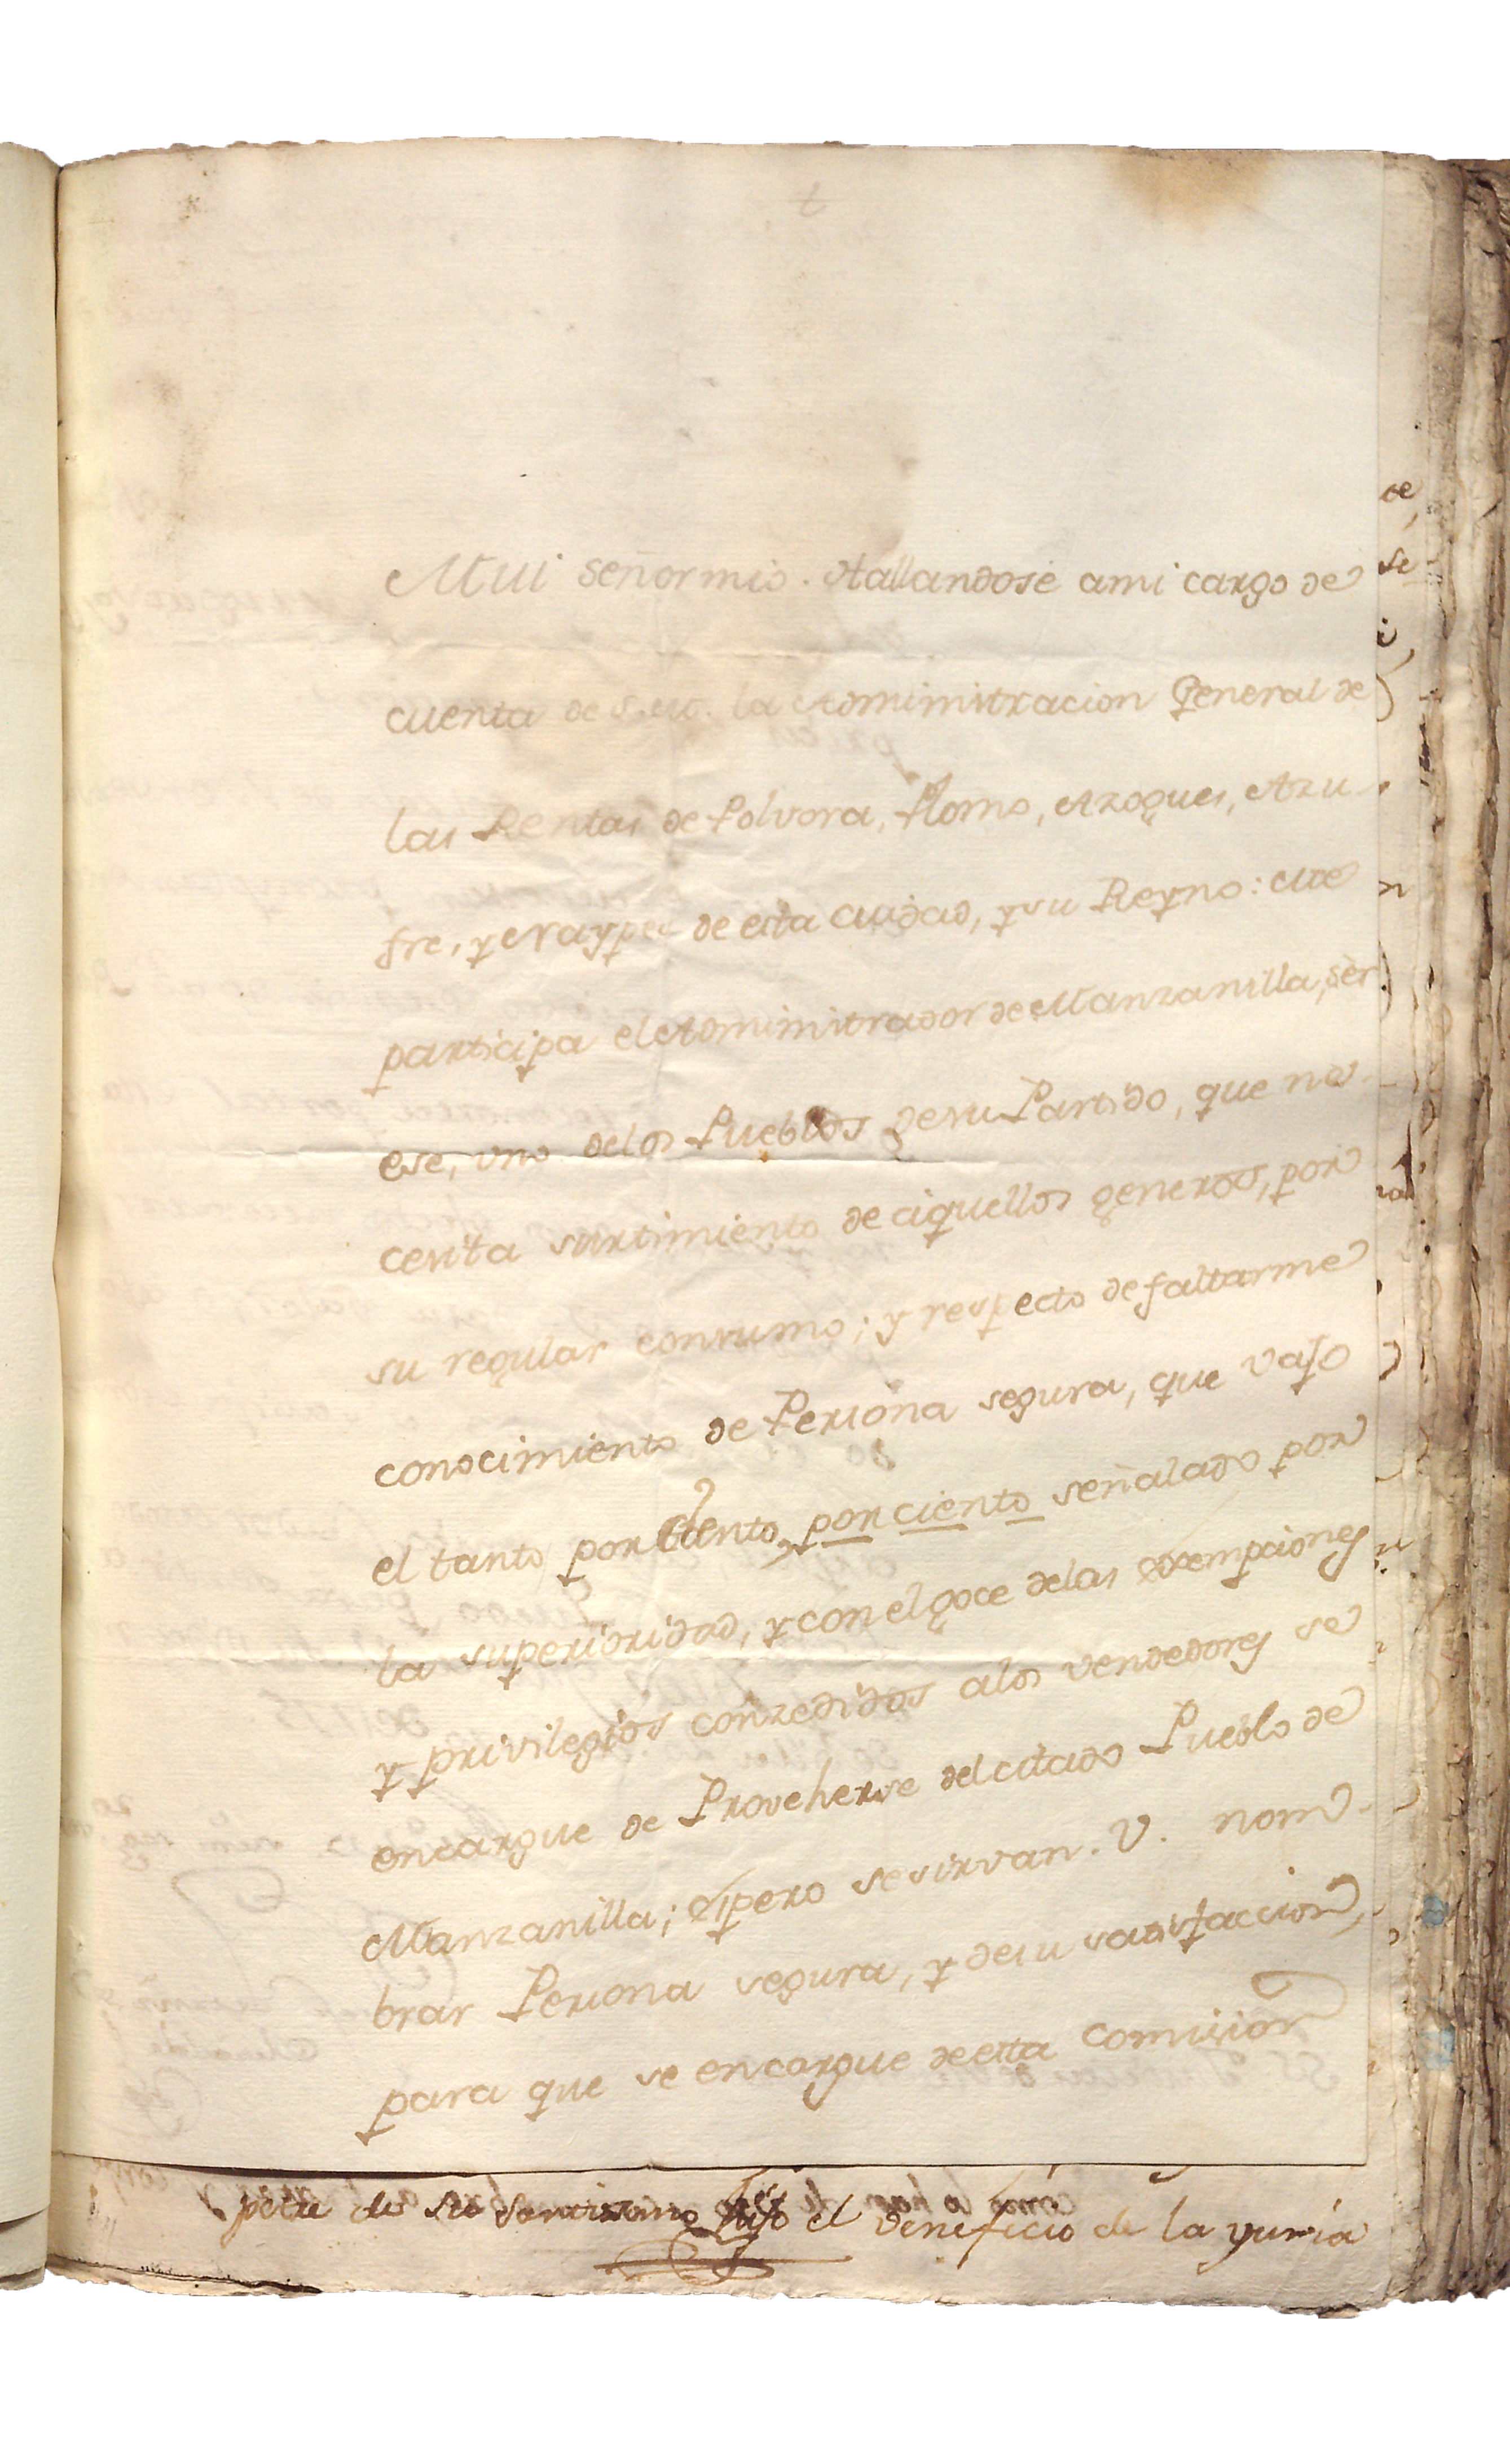 Mui señor mio. Hallandose ami cargo de
cuenta de S.M. la Administracion General de
las Rentas de Polvora, Plomo, Azogues, Azu
fre, y Naypes de esta Ciudad, y su Reyno: me
participa el Administrador de Manzanilla, ser
ese, uno delos Pueblos de su Partido, que ne
cesita surtimiento de aquellos generos, por
su regular consumo; y respecto de faltarme
conocimiento de Persona segura, que vajo
el tanto por Ciento, por ciento señalado por
la superioridad, y con el goce delas exempciones
y privilegios conzedidos alos vendedores se
encargue de Proveherse del citado Pueblo de
Manzanilla; espero se sirvan. V. nom
brar Persona segura, y desu satisfaccion,
para que se encargue deesta Comision
de su Santissimo hijo el veneficio de la